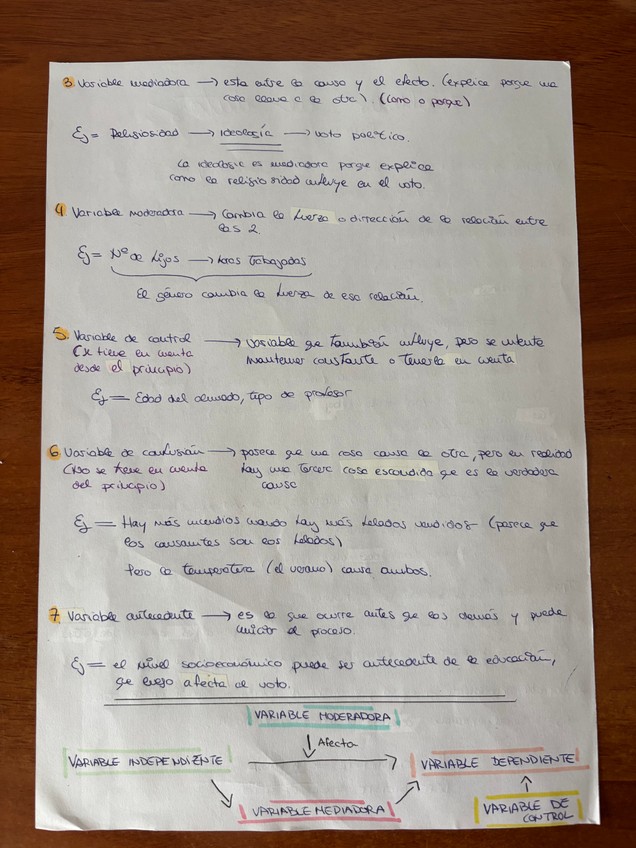 3. Variable mediadora → esta entre la causa y el efecto. (explica porque una
cosa lleva a la otra). (como o porque)
Ej = Religiosidad → ideología → voto político.
La ideología es mediadora porque explica
como la religiosidad influye en el voto.
4 Variable moderadora → Cambia la fuerza o dirección de la relación entre
las 2.
Ej = Nº de hijos → horas trabajadas
El género cambia la fuerza de esa relación.
5. Variable de control → variable qe también influye, pero se intenta
(se tiene en cuenta mantener constante o tenerla en cuenta
desde el principio)
Ej = Edad del alumnado, tipo de profesor
6 Variable de confusión → parece qe una cosa causa la otra, pero en realidad
(No se tiene en cuenta hay una tercera cosa escondida qe es la verdadera
del principio) causa
Ej = Hay más incendios cuando hay más helados vendidos (parece que
los causantes son los helados)
Pero la temperatura (el verano) causa ambos.
7. Variable antecedente → es la que ocurre antes qe las demás y puede
iniciar el proceso.
Ej = el nivel socioeconómico puede ser antecedente de la educación,
qe luego afecta al voto.
VARIABLE MODERADORA
Afecta
VARIABLE INDEPENDIENTE → VARIABLE DEPENDIENTE
VARIABLE MEDIADORA
VARIABLE DE
CONTROL